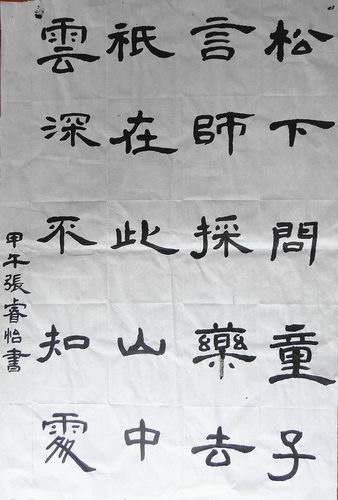 松下問童子
言師採藥去
祇在此山中
雲深不知處
甲午張睿怡書